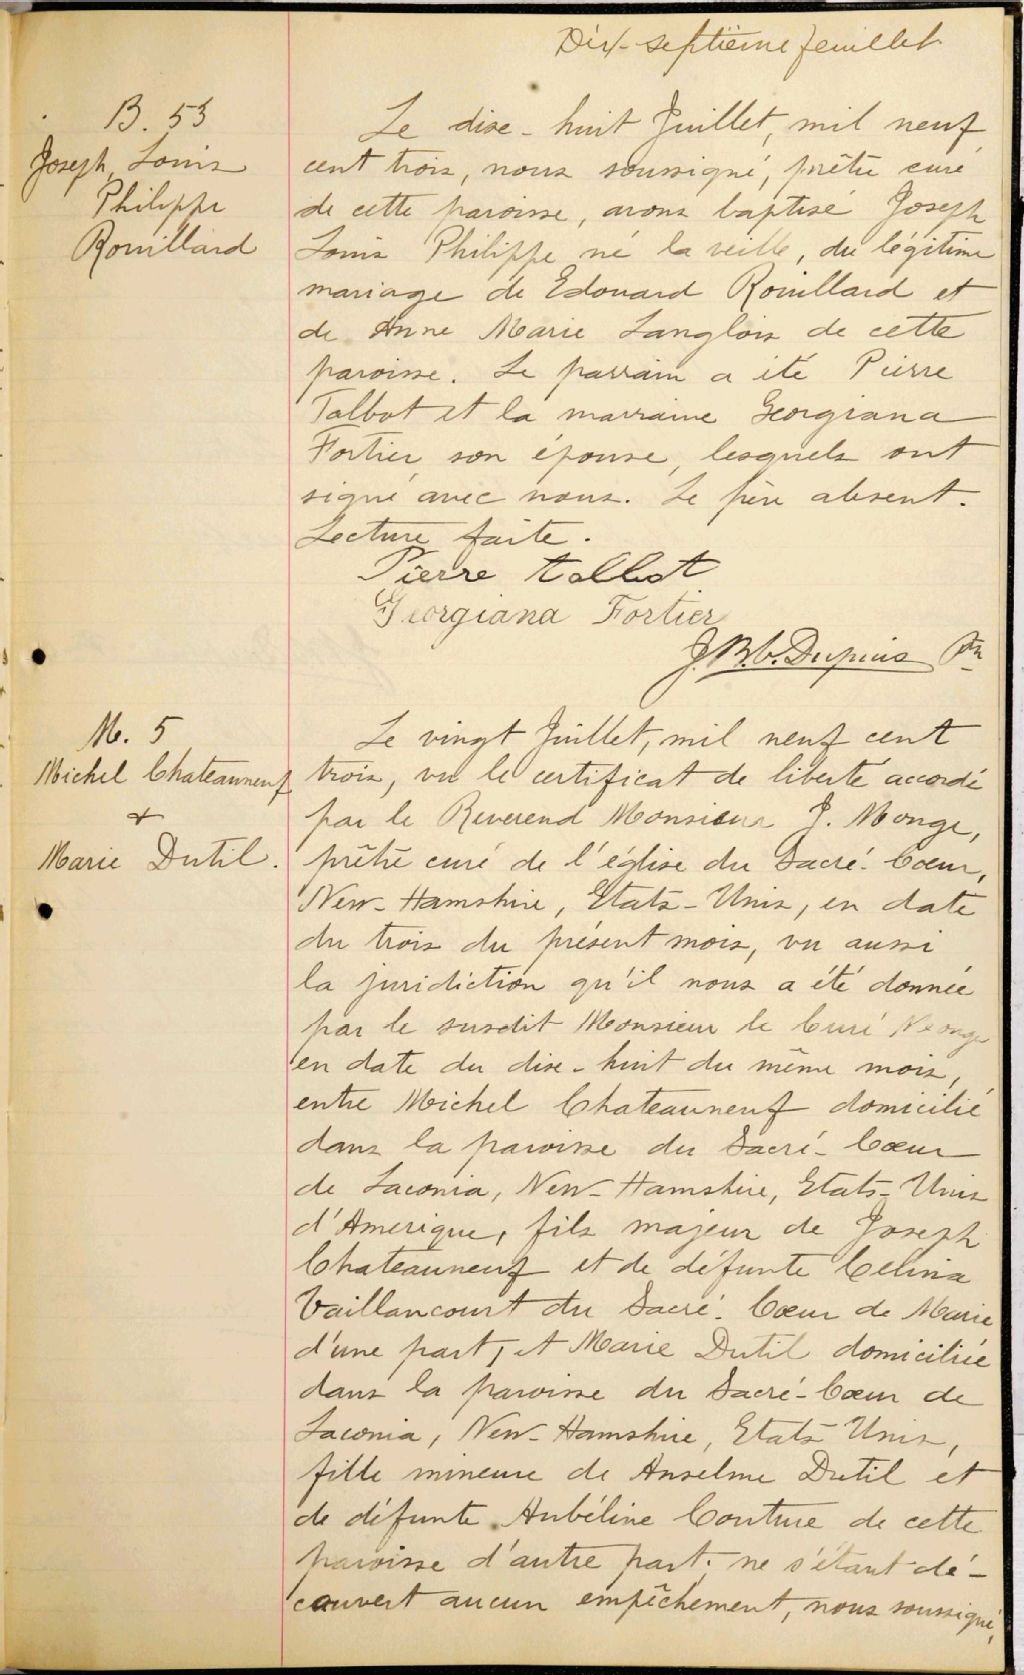 Dix-septième feuillet
B. 53
Joseph, Louis
Philippe
Rouillard
Le dix-huit Juillet, mil neuf
cent trois, nous soussigné, prêtre curé
de cette paroisse, avons baptisé Joseph
Louis Philippe né la veille, du légitime
mariage de Edouard Rouillard et
de Anne Marie Langlois de cette
paroisse. Le parrain a été Pierre
Talbot et la marraine Georgiana
Fortier son épouse, lesquels ont
signé avec nous. Le père absent.
Lecture faite.
Pierre talbot
Georgiana Fortier
J. B. C. Dupuis Ptr
M. 5
Michel Chateauneuf
+
Marie Dutil.
Le vingt Juillet, mil neuf cent
trois, vu le certificat de liberté accordé
par le Reverend Monsieur J. Monge,
prêtre curé de l'église du Sacré-Coeur,
New-Hamshire, Etats-Unis, en date
du trois du présent mois, vu aussi
la juridiction qu'il nous a été donnée
par le susdit Monsieur le Curé Monge
en date du dix-huit du même mois,
entre Michel Chateauneuf domicilié
dans la paroisse du Sacré-Coeur
de Laconia, New-Hamshire, Etats-Unis
d'Amerique, fils majeur de Joseph
Chateauneuf et de défunte Celina
Vaillancourt du Sacré-Coeur de Marie
d'une part, et Marie Dutil domiciliée
dans la paroisse du Sacré-Coeur de
Laconia, New-Hamshire, Etats Unis,
fille mineure de Anselme Dutil et
de défunte Aubéline Couture de cette
paroisse d'autre part; ne s'étant dé-
couvert aucun empêchement, nous soussigné,